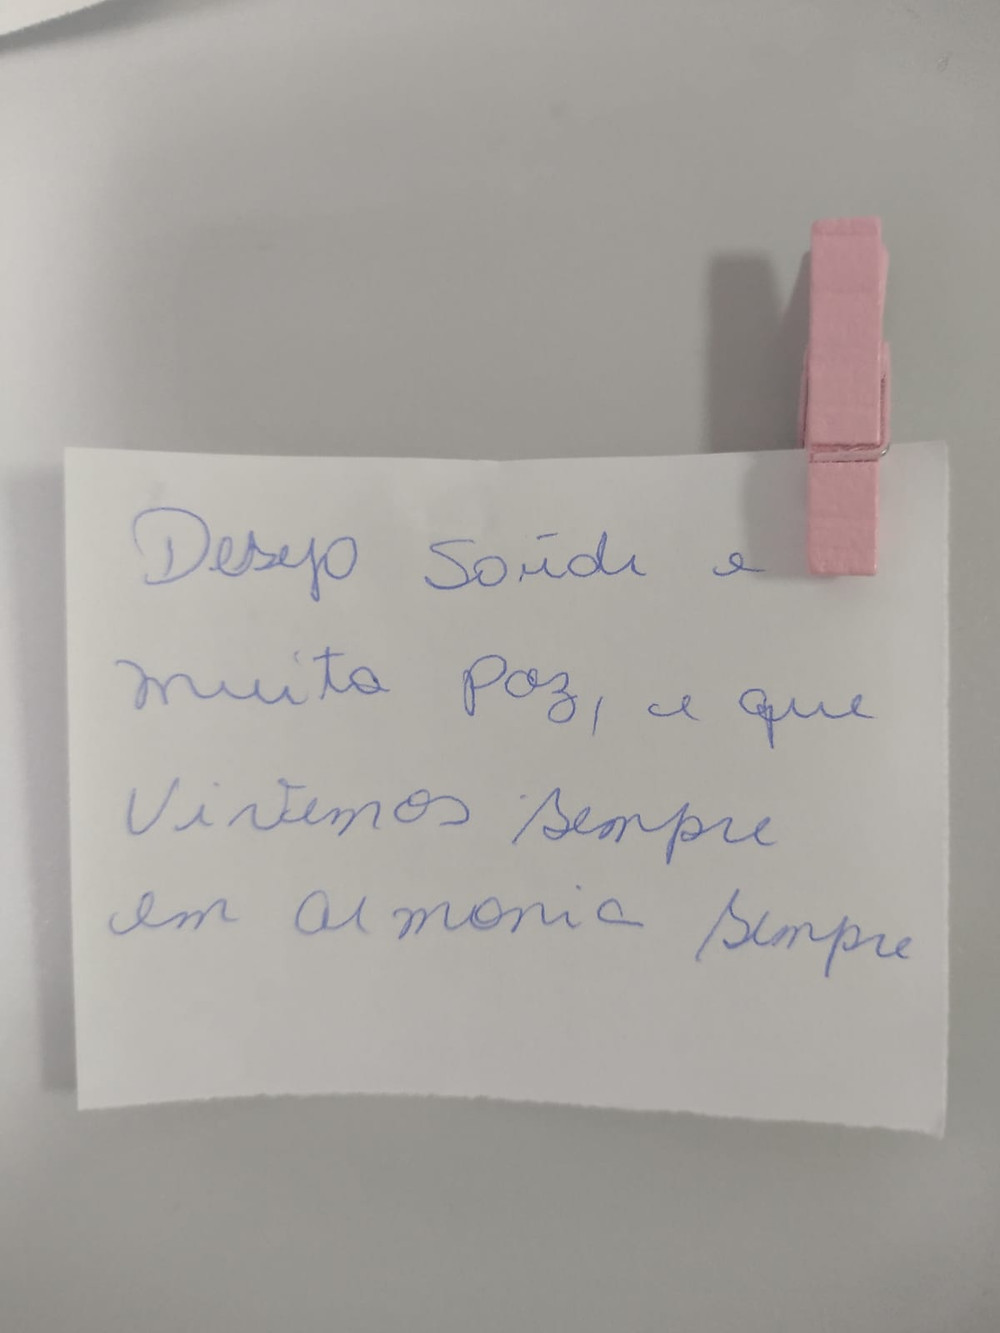 Desejo Saúde e
muita paz, e que
Vivemos sempre
em armonia sempre